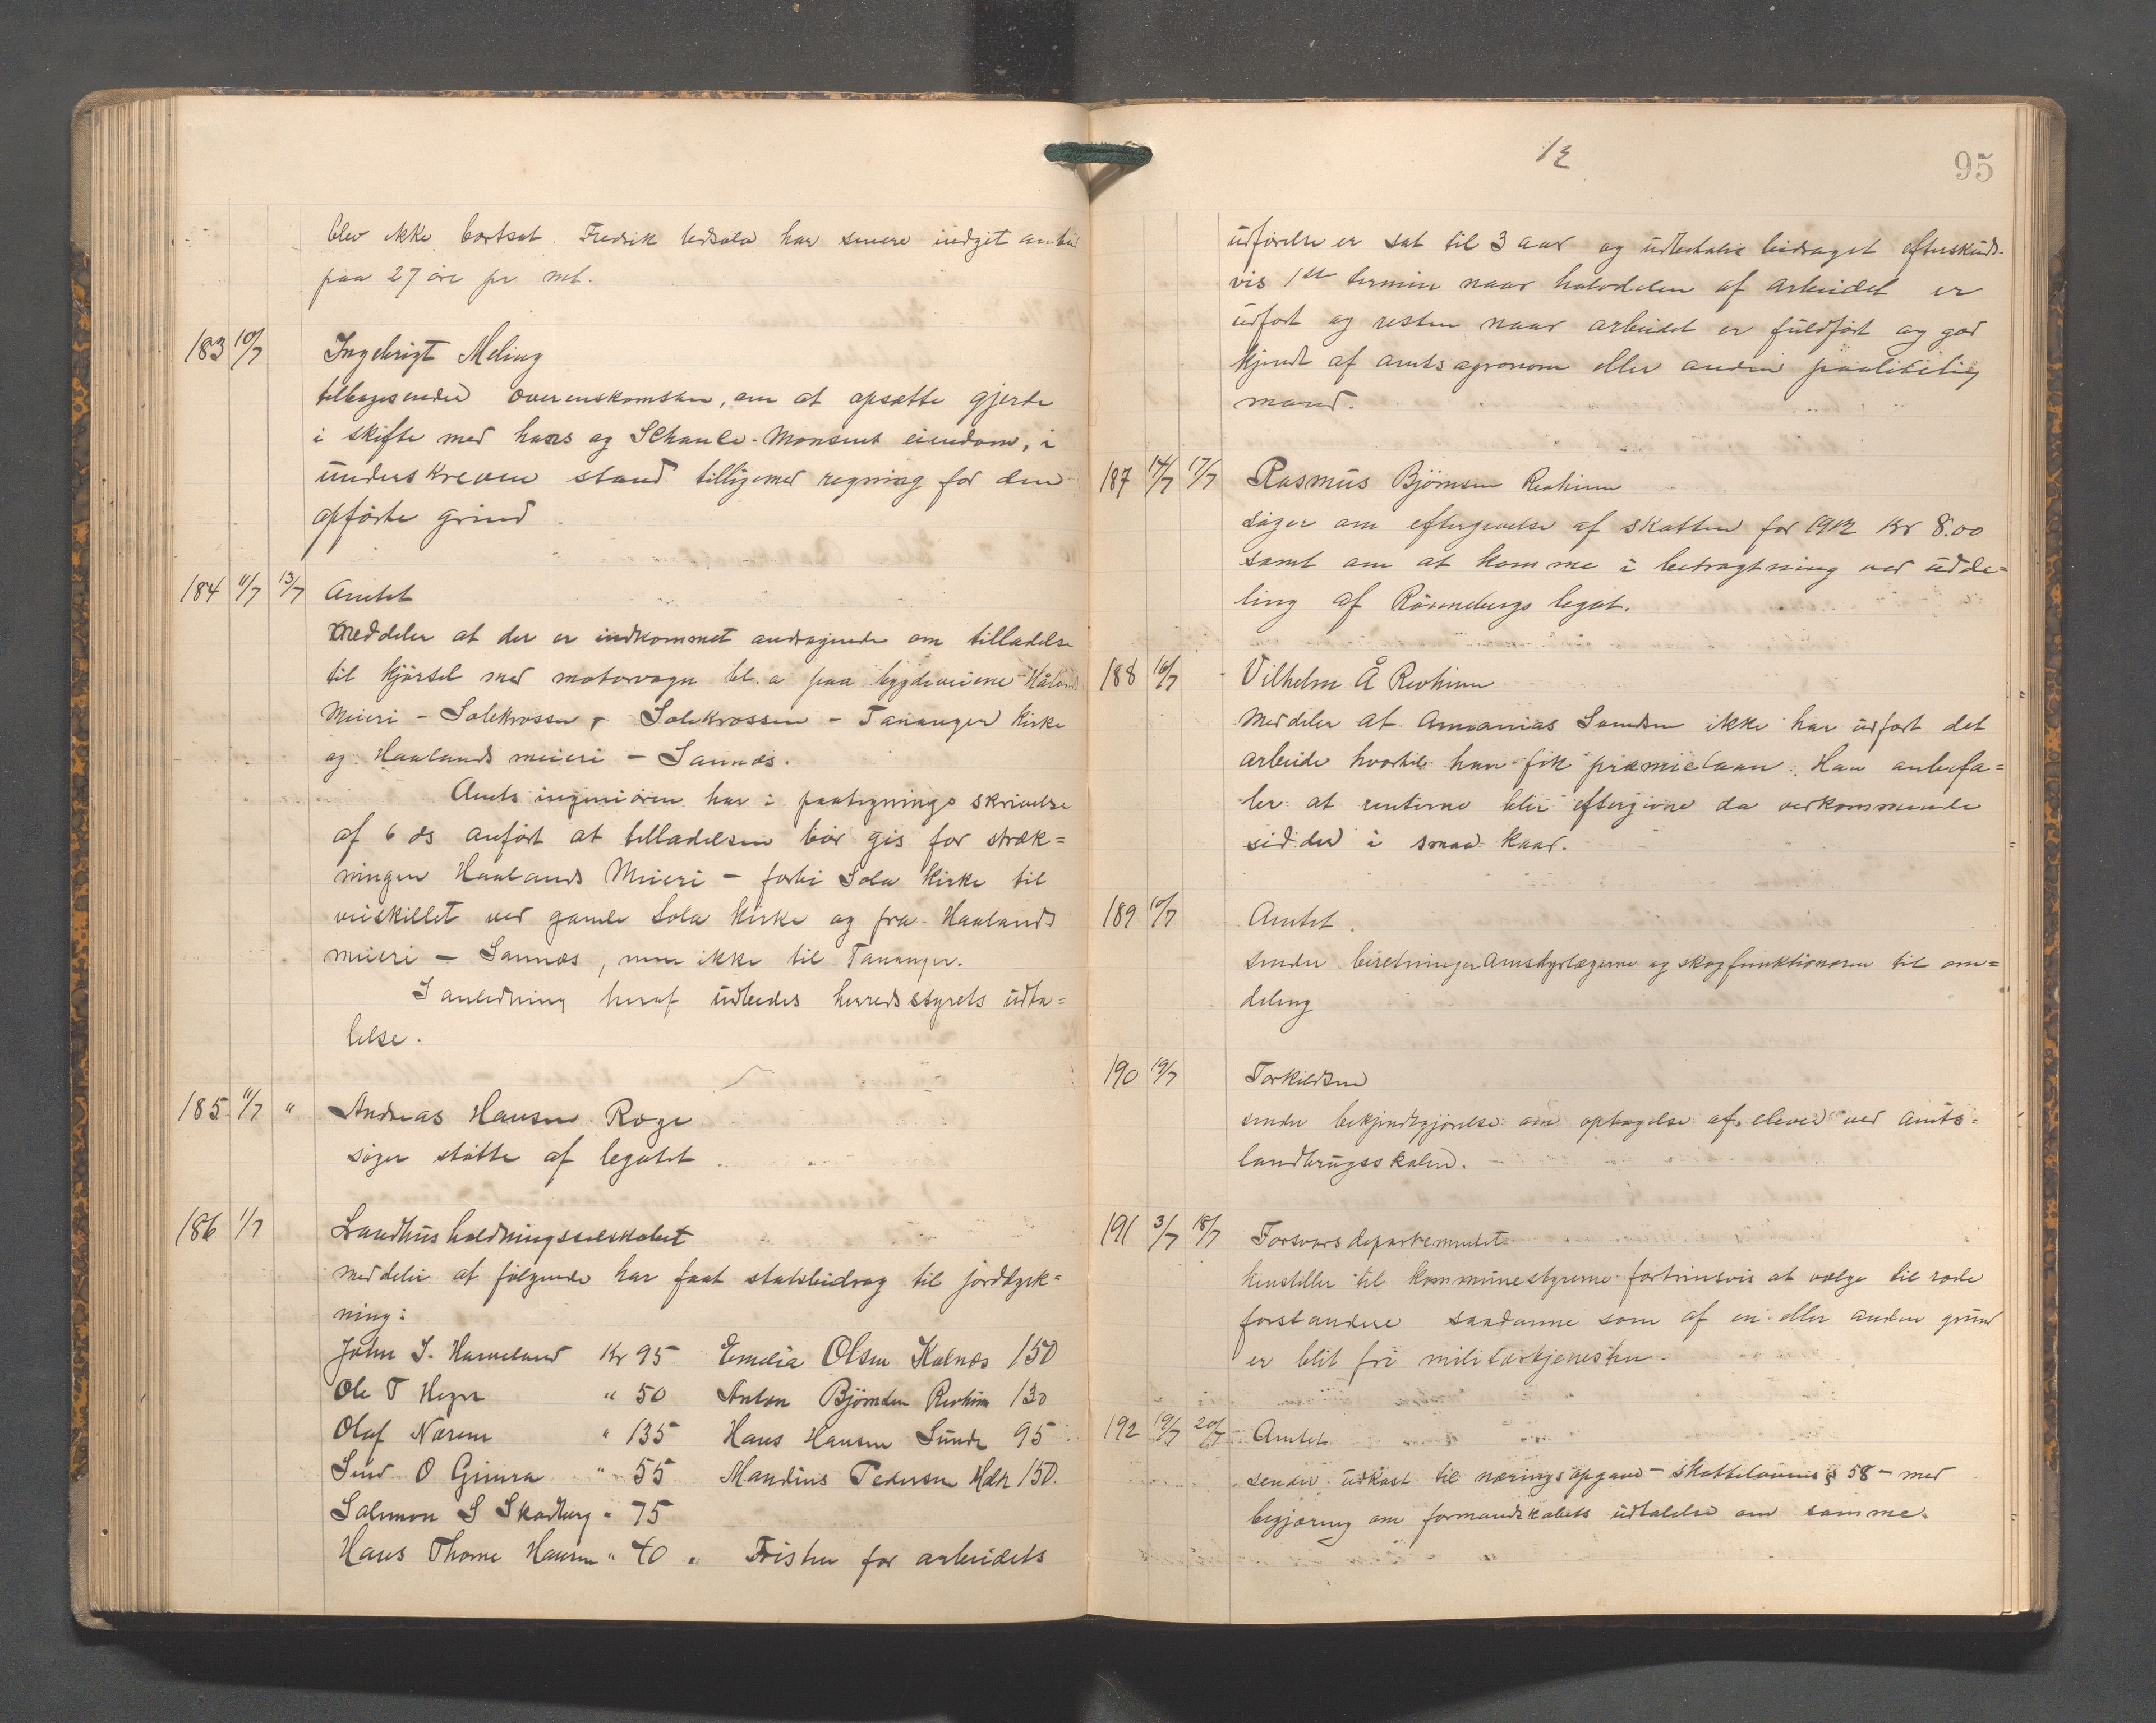 blev ikke bortsat. Fredrik har senere indgit anbud
paa 27 øre pr met.
183 10/7 Ingebrigt Meling
tilbagesender overenskomsten, om at opsætte gjerde
i skifte med hans og Monsens eiendom, i
underskreven stand tilligemed regning for den
opførte grind
184 11/7 13/7 Amtet
meddeler at der er indkommet andragende om tilladelse
til kjørsel med motorvogn bl. a paa bygdeveiene Håland
Meieri - Solekrossen, Solekrossen - Tananger kirke
og Haalands meieri - Sannæs.
Amts ingeniøren har i paategnings skrivelse
af 6 ds anført at tilladelsen bør gis for stræk=
ningen Haalands Meieri - forbi Sola kirke til
veiskillet ved gamle Sola kirke og fra Haalands
meieri - Sannæs, men ikke til Tananger.
I anledning heraf udbedes herredsstyrets udta=
lelse.
185 11/7 " Andreas Hansen Røge
søger støtte af legatet
186 1/7 Landhusholdningsselskabet
meddeler at følgende har faat statsbidrag til jorddyrk=
ning:
John S. Harveland Kr 95 Emelia Olsen Kolnæs 150
Ole T " 50 Anton Bjørnsen Revheim 130
Olaf Nærem " 135 Hans Hansen Sunde 95
O Grimra " 55 Mandius Pedersen 150.
Salemon S Skadberg " 75
Hans Thorne Hansen " 40. Fristen for arbeidets
12
95
udførelse er sat til 3 aar og udbetales bidraget efterskuds-
vis 1ste termin naar halvdelen af arbeidet er
udført og resten naar arbeidet er fuldført og god
kjendt af amtsagronom eller anden paalidelig
mand.
187 14/7 17/7 Rasmus Bjørnsen Revheim
søger om eftergivelse af skatten for 1912 Kr 8.00
samt om at komme i betragtning ved udde=
ling af Rønnebergs legat.
188 16/7 Vilhelm Å Revheim
Meddeler at Annanias Samdsen ikke har udført det
arbeide hvortil han fik præmielaan. Han anbefa=
ler at renterne blir eftergivne da vedkommende
sidder i smaa kaar.
189 10/7 Amtet.
sender beretninger Amtsdyrlægerne og skogfunktionæren til om=
deling
190 19/7 Torkildsen
sender bekjendtgjørelse om optagelse af elever ved amts-
landbrugsskolen.
191 3/7 18/7 Forsvarsdepartementet
henstiller til kommunestyrerne fortrinsvis at vælge til rode
forstandere saadanne som af en eller anden grund
er blit fri militærtjenesten.
192 19/7 20/7 Amtet
sender udkast til næringsopgave - skattelovens § 58 - med
begjæring om formandskabets udtalelse om samme.